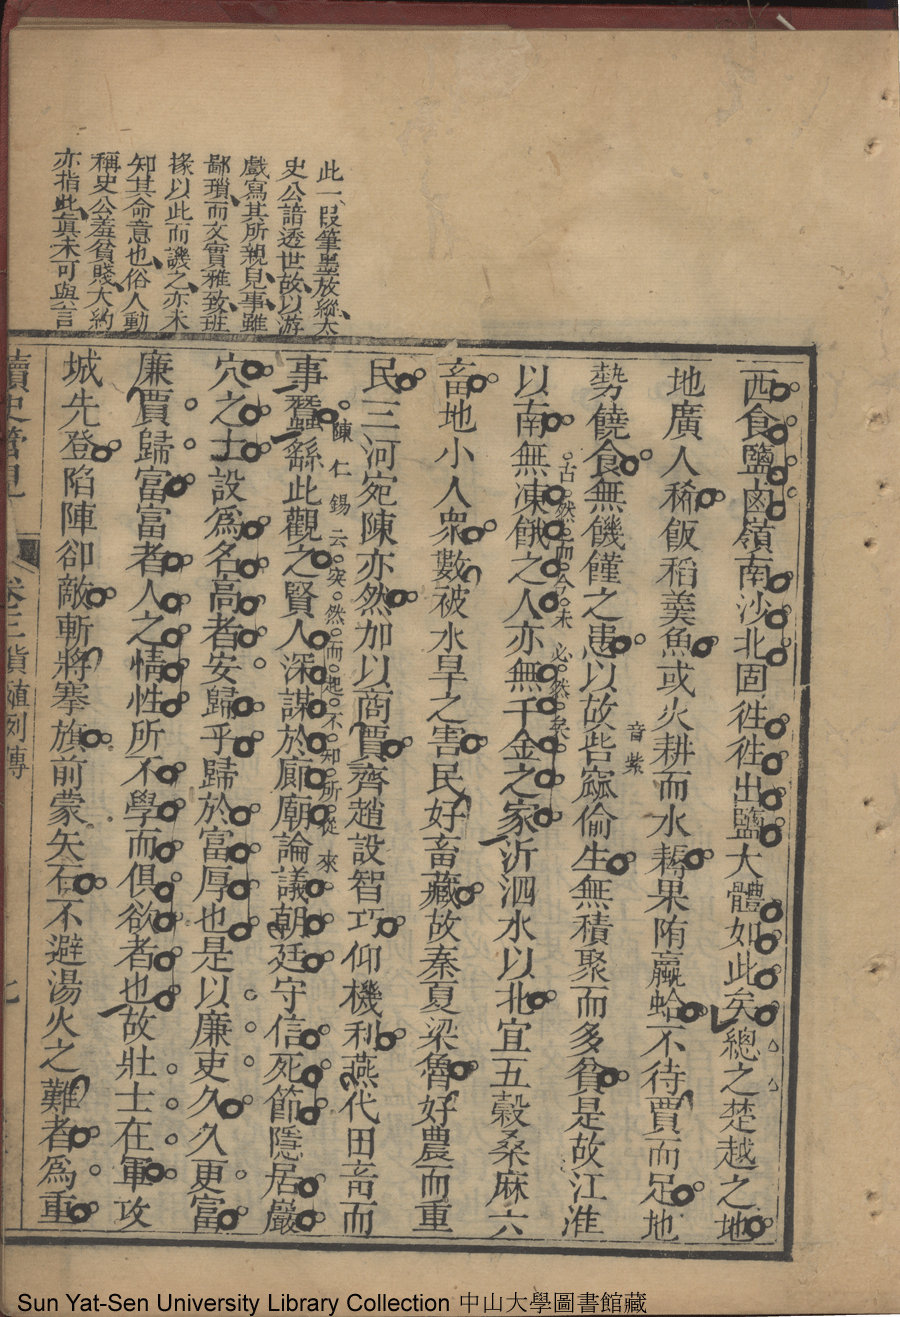 此一段筆墨放縱太
史公諳透世故以游
戲寫其所親見事雖
鄙瑣而文實雅致班
掾以此而譏之亦未
知其命意也俗人動
稱史公羞貧賤大約
亦指此眞未可與言
西食鹽鹵嶺南沙北固徃徃出鹽大體如此矣總之楚越之地
地廣人稀飯稻羹魚或火耕而水耨果陏蠃蛤不待賈而足地
勢饒食無饑饉之患以故呰窳偷生無積聚而多貧是故江淮
音紫
以南無凍餓之人亦無千金之家沂泗水以北宜五穀桑麻六
古然而今未必然矣
畜地小人衆數被水旱之害民好畜藏故秦夏梁魯好農而重
民三河宛陳亦然加以商賈齊趙設智巧仰機利燕代田畜而
事蠶繇此觀之賢人深謀於廊廟論議朝廷守信死節隱居巖
陳仁錫云突然而起不知所從來
穴之士設爲名高者安歸乎歸於富厚也是以廉吏久久更富
廉賈歸富富者人之情性所不學而俱欲者也故壯士在軍攻
城先登陷陣卻敵斬將搴旗前蒙矢石不避湯火之難者爲重
讀史管見 卷三貨殖列傳 七
Sun Yat-Sen University Library Collection 中山大學圖書館藏